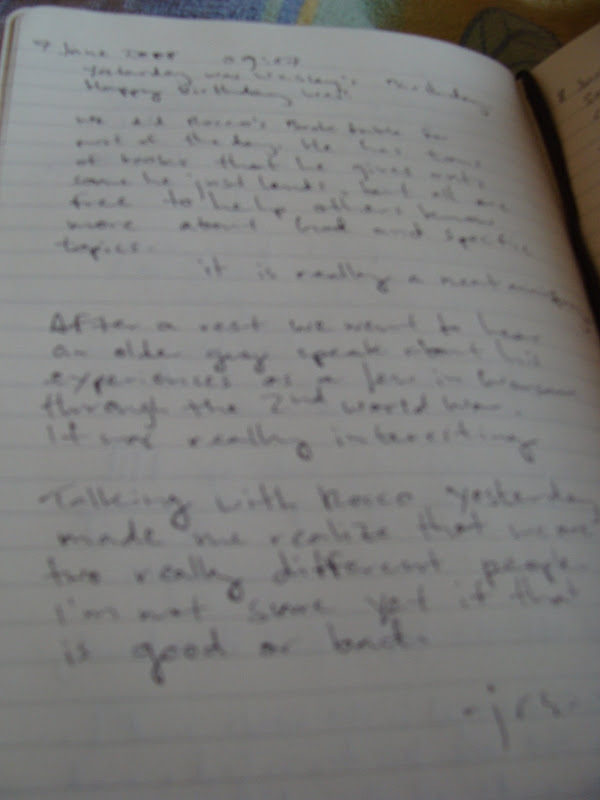 7 June 2008 09:57
Yesterday was Wesley's Birthday
Happy Birthday Wes!
We did Rocco's Book table for
most of the day. He has tons
of books that he gives out,
some he just lends, but all are
free to help others know
more about God and specific
topics.
it is really a neat
After a rest we went to hear
an older guy speak about his
experiences as a Jew in Warsaw
through the 2nd world war.
It was really interesting
Talking with Rocco yesterday
made me realize that we are
two really different people.
I'm not sure yet if that
is good or bad.
-jrs-